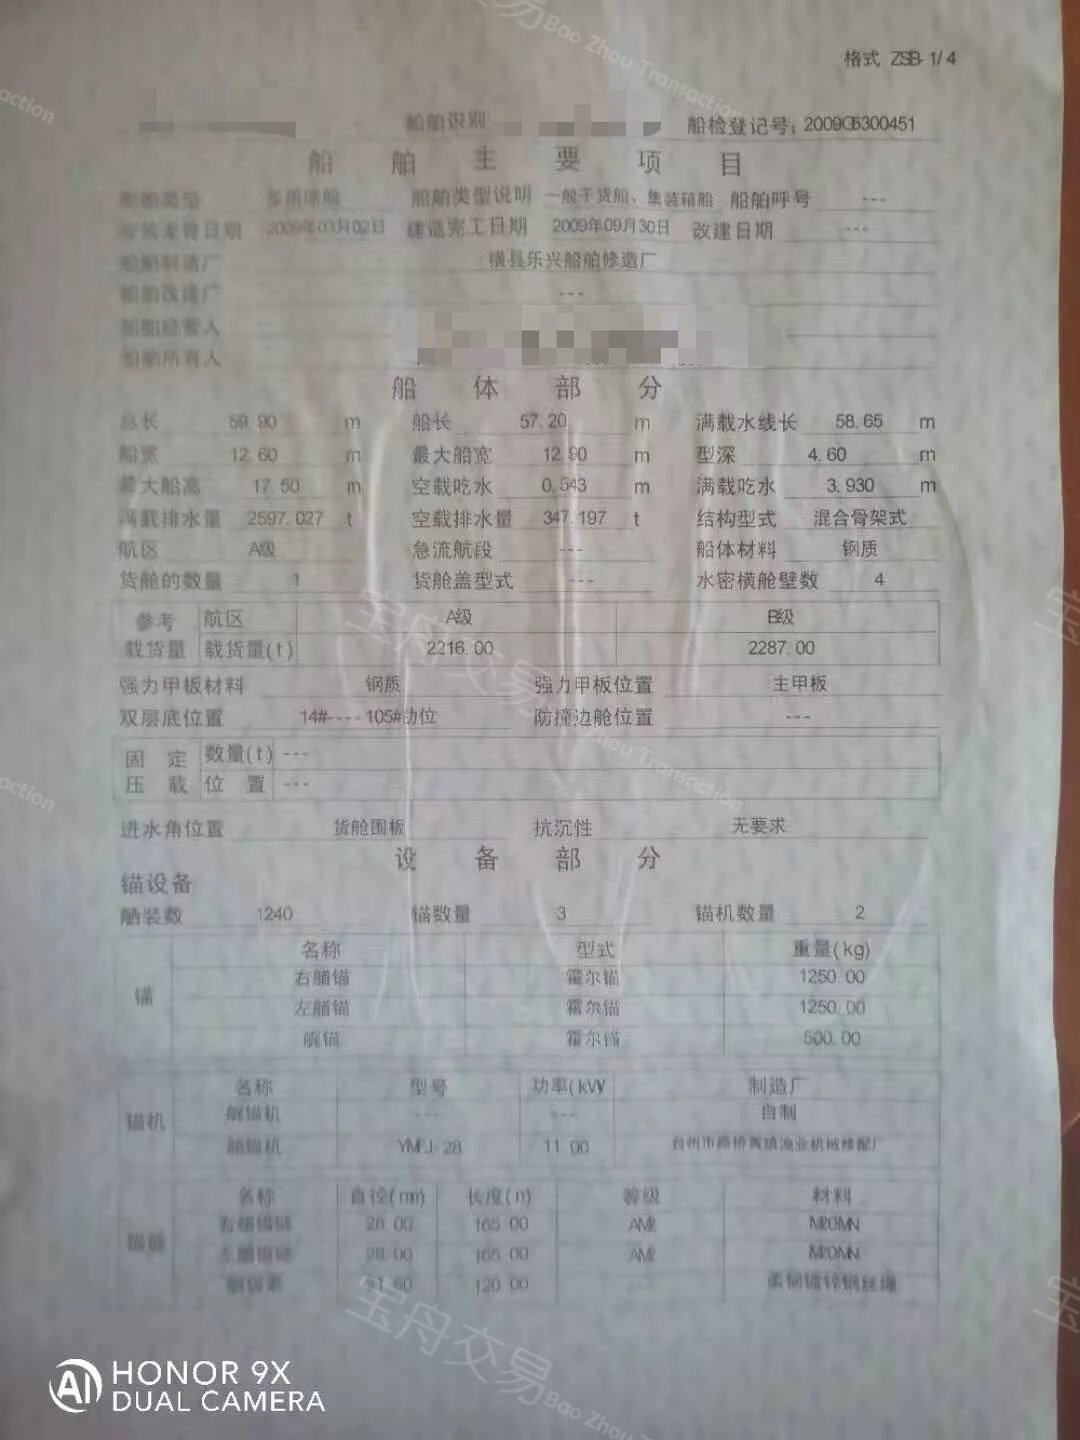 格式 ZSB-1/4
船舶识别 船检登记号: 2009G5300451
船舶主要项目
船舶类型 多用途船 船舶类型说明 一般干货船、集装箱船 船舶呼号 ---
安放龙骨日期 2009年03月02日 建造完工日期 2009年09月30日 改建日期 ---
船舶制造厂 横县乐兴船舶修造厂
船舶改建厂 ---
船舶经营人
船舶所有人
船体部分
总长 59.90 m 船长 57.20 m 满载水线长 58.65 m
船宽 12.60 m 最大船宽 12.90 m 型深 4.60 m
最大船高 17.50 m 空载吃水 0.543 m 满载吃水 3.930 m
满载排水量 2597.027 t 空载排水量 347.197 t 结构型式 混合骨架式
航区 A级 急流航段 --- 船体材料 钢质
货舱的数量 1 货舱盖型式 --- 水密横舱壁数 4
参考 航区 A级 B级
载货量 载货量(t) 2216.00 2287.00
强力甲板材料 钢质 强力甲板位置 主甲板
双层底位置 14#----105#肋位 防撞边舱位置 ---
固定 数量(t) ---
压载 位置 ---
进水角位置 货舱围板 抗沉性 无要求
设备部分
锚设备
舾装数 1240 锚数量 3 锚机数量 2
名称 型式 重量(kg)
锚
右艏锚 霍尔锚 1250.00
左艏锚 霍尔锚 1250.00
艉锚 霍尔锚 500.00
名称 型号 功率(kW) 制造厂
锚机
艉锚机 --- --- 自制
艏锚机 YMJ-28 11.00 台州市路桥黄琅渔业机械修配厂
名称 直径(mm) 长度(m) 等级 材料
锚链
右艏锚链 28.00 165.00 AM2 M20MN
左艏锚链 28.00 165.00 AM2 M20MN
艉锚索 21.50 120.00 柔韧镀锌钢丝绳
HONOR 9X
DUAL CAMERA
宝舟交易 Bao Zhou Transaction